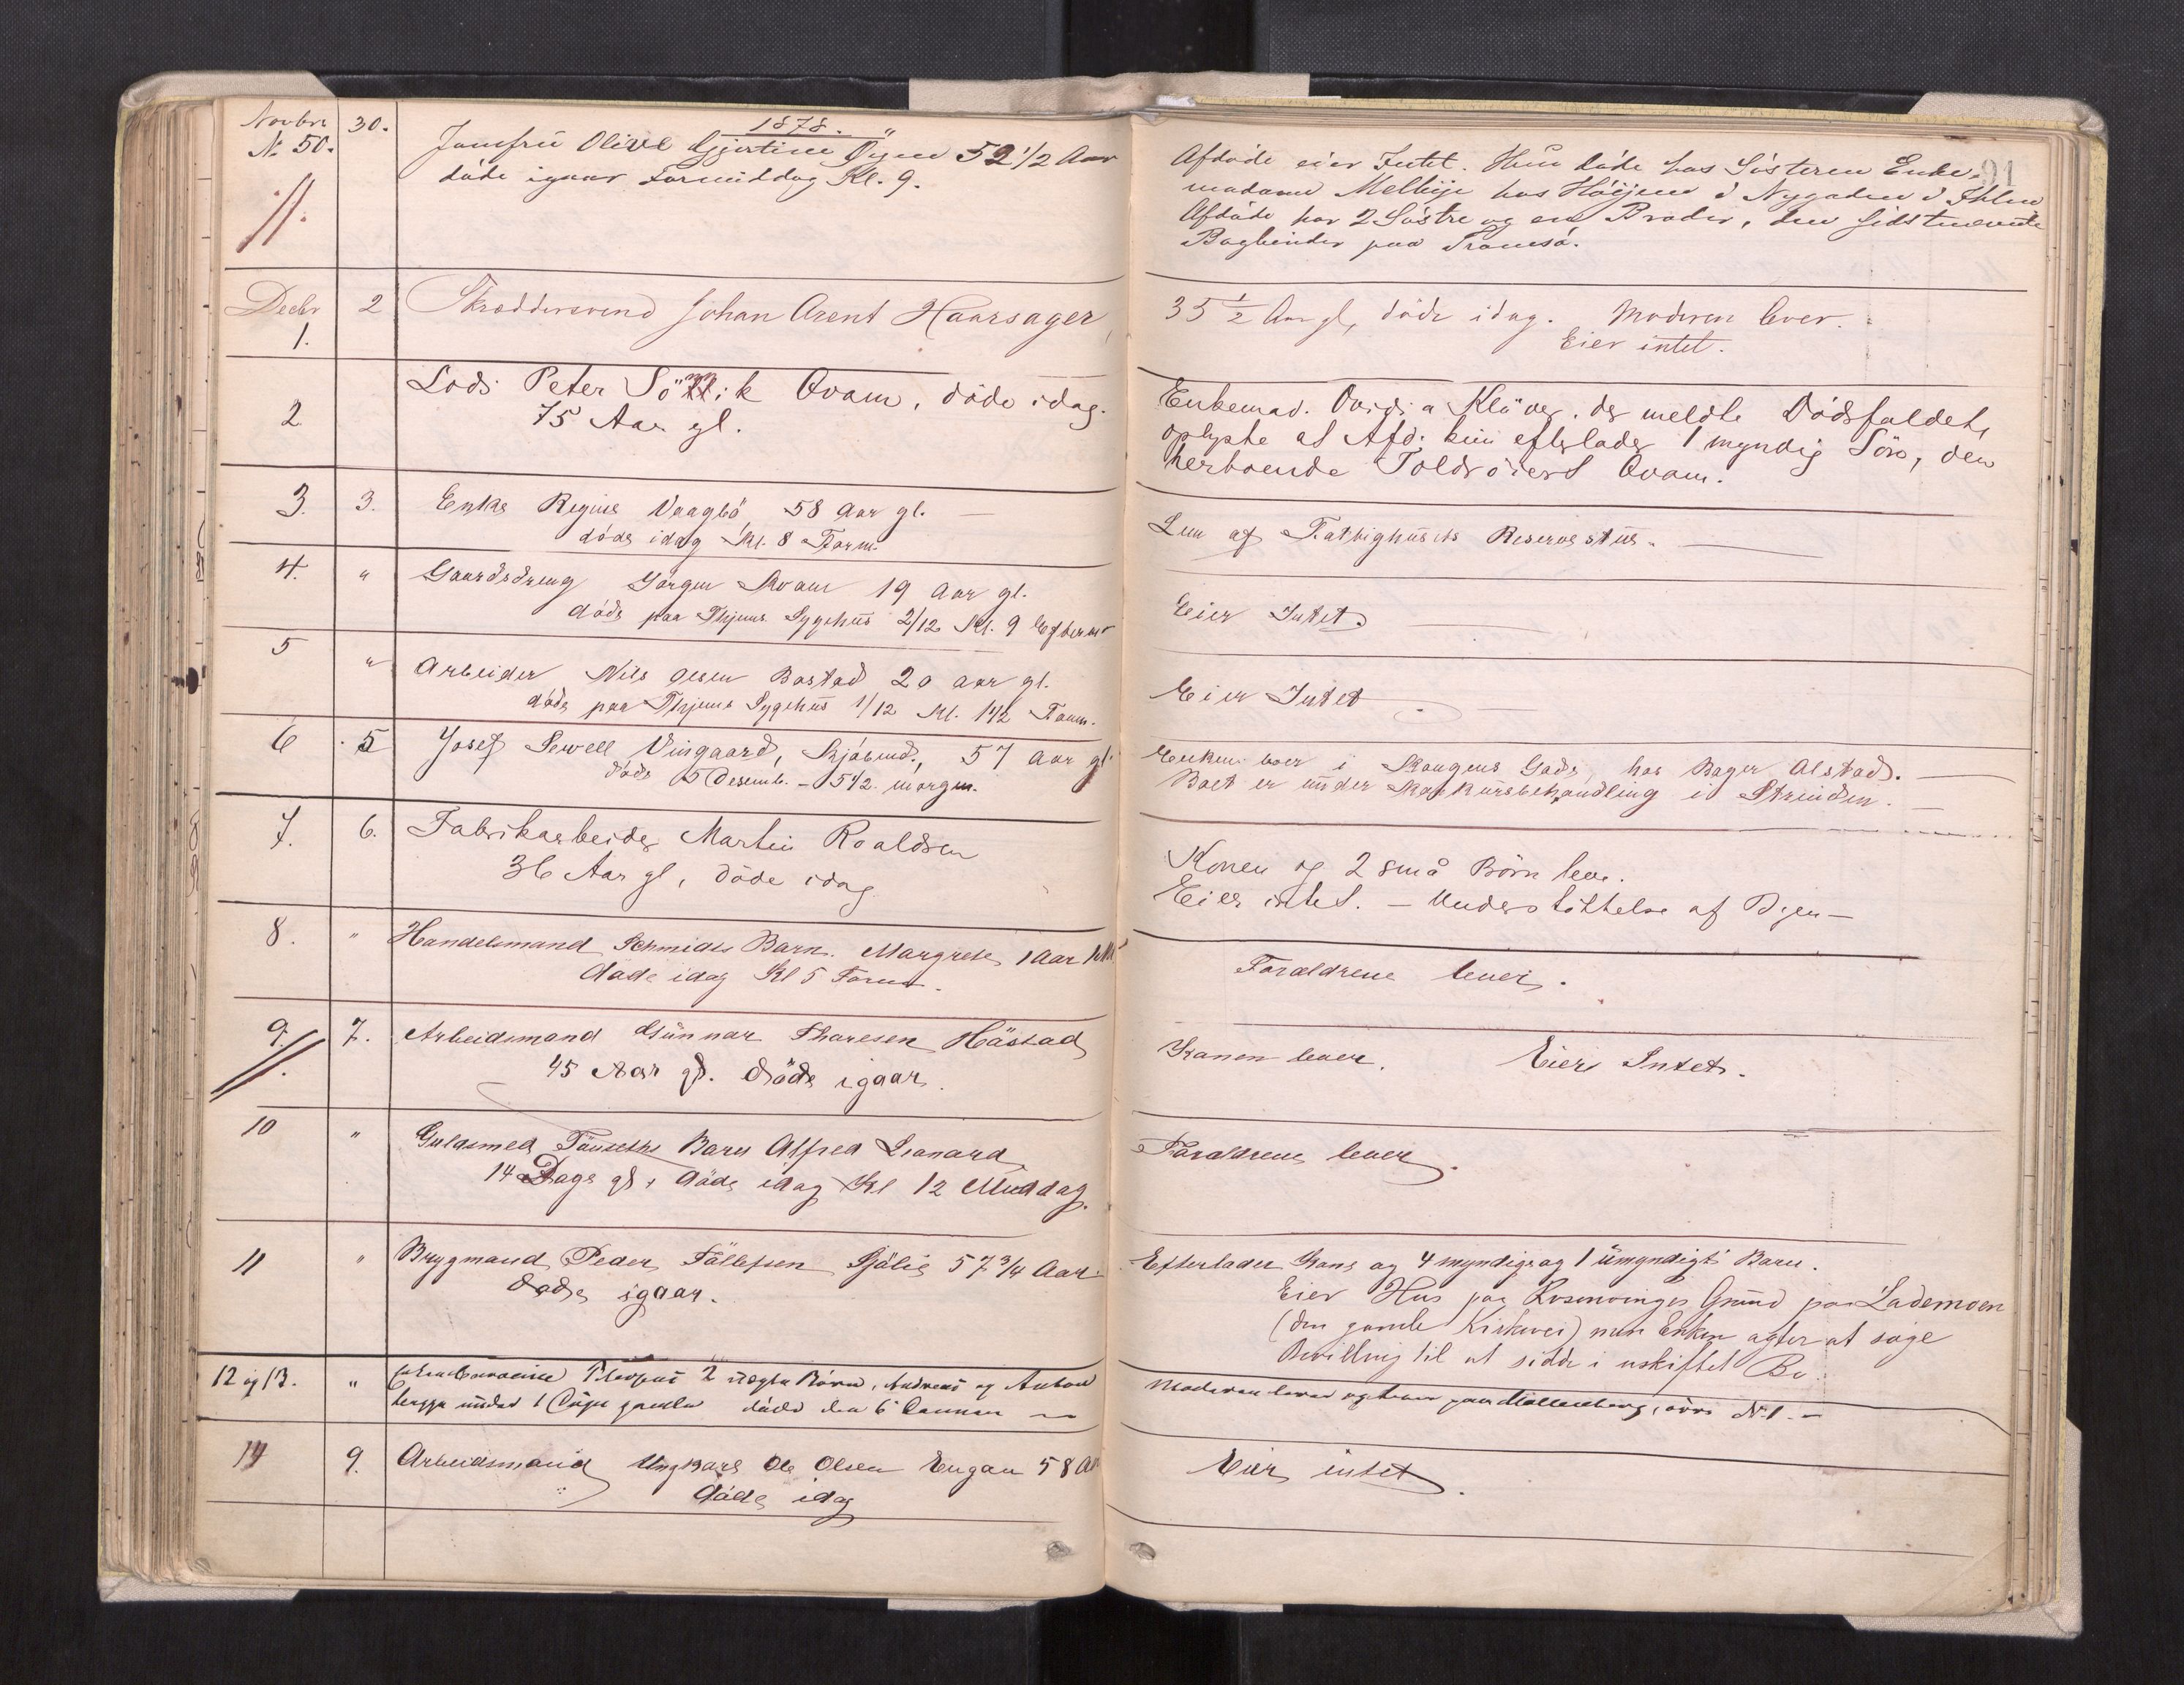 1878.
Novbr 30.
No 50. Jomfru Olive Gjertine 52 1/2 Aar
döde igaar Formiddag Kl. 9.
Afdøde eier Intet. Hun døde hos Søsteren Enke-
madame Melbye hos Höijem i Nygaden i Ihlen
Afdøde har 2 Søstre og en Broder, den sidstnævnte
Bogbinder paa Tromsø.
91
Decbr 2 Skræddersvend Johan Arent Haarsager,
1.
35 1/2 Aar gl, døde idag. Moderen lever.
Eier intet.
2. Lods Peter Qvam, döde idag.
75 Aar gl.
Enkemad. Klüver, der meldte Dødsfaldet,
oplyste at Afd. kun efterlader 1 myndig Sön, den
herboende Toldroiert Qvam.
3. 3. Enke Regine Vaagbö 58 Aar gl.
döde idag Kl. 8 Form.
Lem af Fattighusets Reservestue.
4. " Gaardsdreng Jörgen Kvam 19 Aar gl.
döde paa Thjems Sygehus 2/12 Kl. 9 Efterm
Eier Intet.
5 " Arbeider Nils Olsen Bostad 20 aar gl.
döde paa Thjems Sygehus 1/12 Kl. 1 1/2 Form.
Eier Intet
6 5 Josef Sewell Vingaard, 57 Aar gl.
döde 5 Desemb. - 5 1/2 morgen.
Enken boer i Kongens Gade, hos Bager Alstad.
Boet er under Konkursbehandling i Strinden.
7. 6. Fabrikarbeider Martin Roaldsen
36 Aar gl, döde idag
Konen og 2 små Börn leve.
Eier intet. - Understöttelse af Byen -
8. " Handelsmand Schmidts Barn. Margrete 1 Aar
döde idag Kl 5 Form.
Forældrene lever.
9. 7. Arbeidsmand Gunnar Thoresen Håstad
45 Aar gl. döde igaar.
Konen lever. Eier Intet.
10 " Guldsmed Tönseths Barn Alfred Leonard
14 Dage gl, döde idag Kl 12 Middag.
Forældrene lever.
11 " Brygmand Peder Sjölie 57 3/4 Aar
döde igaar.
Efterlader Kone og 4 myndige og 1 umyndigt Barn.
Eier Hus paa Rosenvinges Grund paa Lademoen
(den gamle Kirkevei) men Enken agter at søge
Bevilling til at sidde i uskiftet Bo.
12 og 13. " 2 uægte Börn, Andreas og Anton
begge under 1 gamle döde den 6
Moderen lever og boer paa Möllenberg, No 1.
14 9. Arbeidsmand Ungkarl Ole Olsen Engan 58 Aar
döde idag
Eier intet.